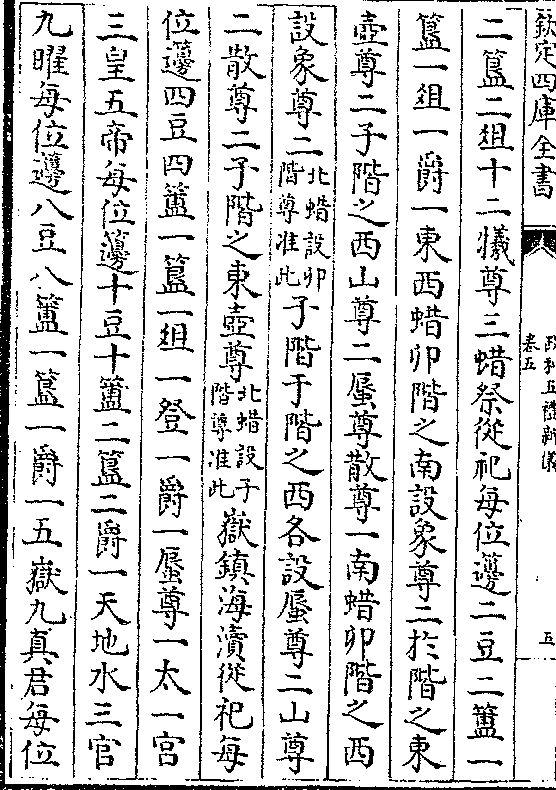 欽定四庫全書
政和五禮新儀
卷五
五
二簋二俎十二犧尊三蜡祭從祀每位籩二豆二簠一
簋一俎一爵一東西蜡卯階之南設象尊二於階之東
壺尊二子階之西山尊二蜃尊散尊一南蜡卯階之西
設象尊二北蜡設卯階尊准此子階于階之西各設蜃尊二山尊
二散尊二子階之東壺尊北蜡設子階尊准此嶽鎮海瀆從祀每
位籩四豆四簠一簋一俎一登一爵一蜃尊一太一宮
三皇五帝每位籩十豆十簠二簋二爵一天地水三官
九曜每位籩八豆八簠一簋一爵一五嶽九真君每位